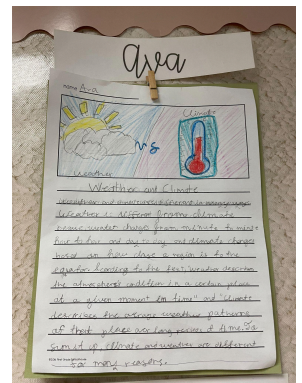 Ava
name Ava
Climate
vs
Weather
Weather and Climate
Weather is different from climate
because weater changes from minute to minute
hour to hour and day to day and climate changes
based on how close a region is to the
equator. Acording to the text, Weather describes
the atmospheric condition in a certain place
at a given moment in time" and "Climate
describes the average weather patterns
of that place over long period of time. So
sum it up, climate and weather are different
for many reasons.